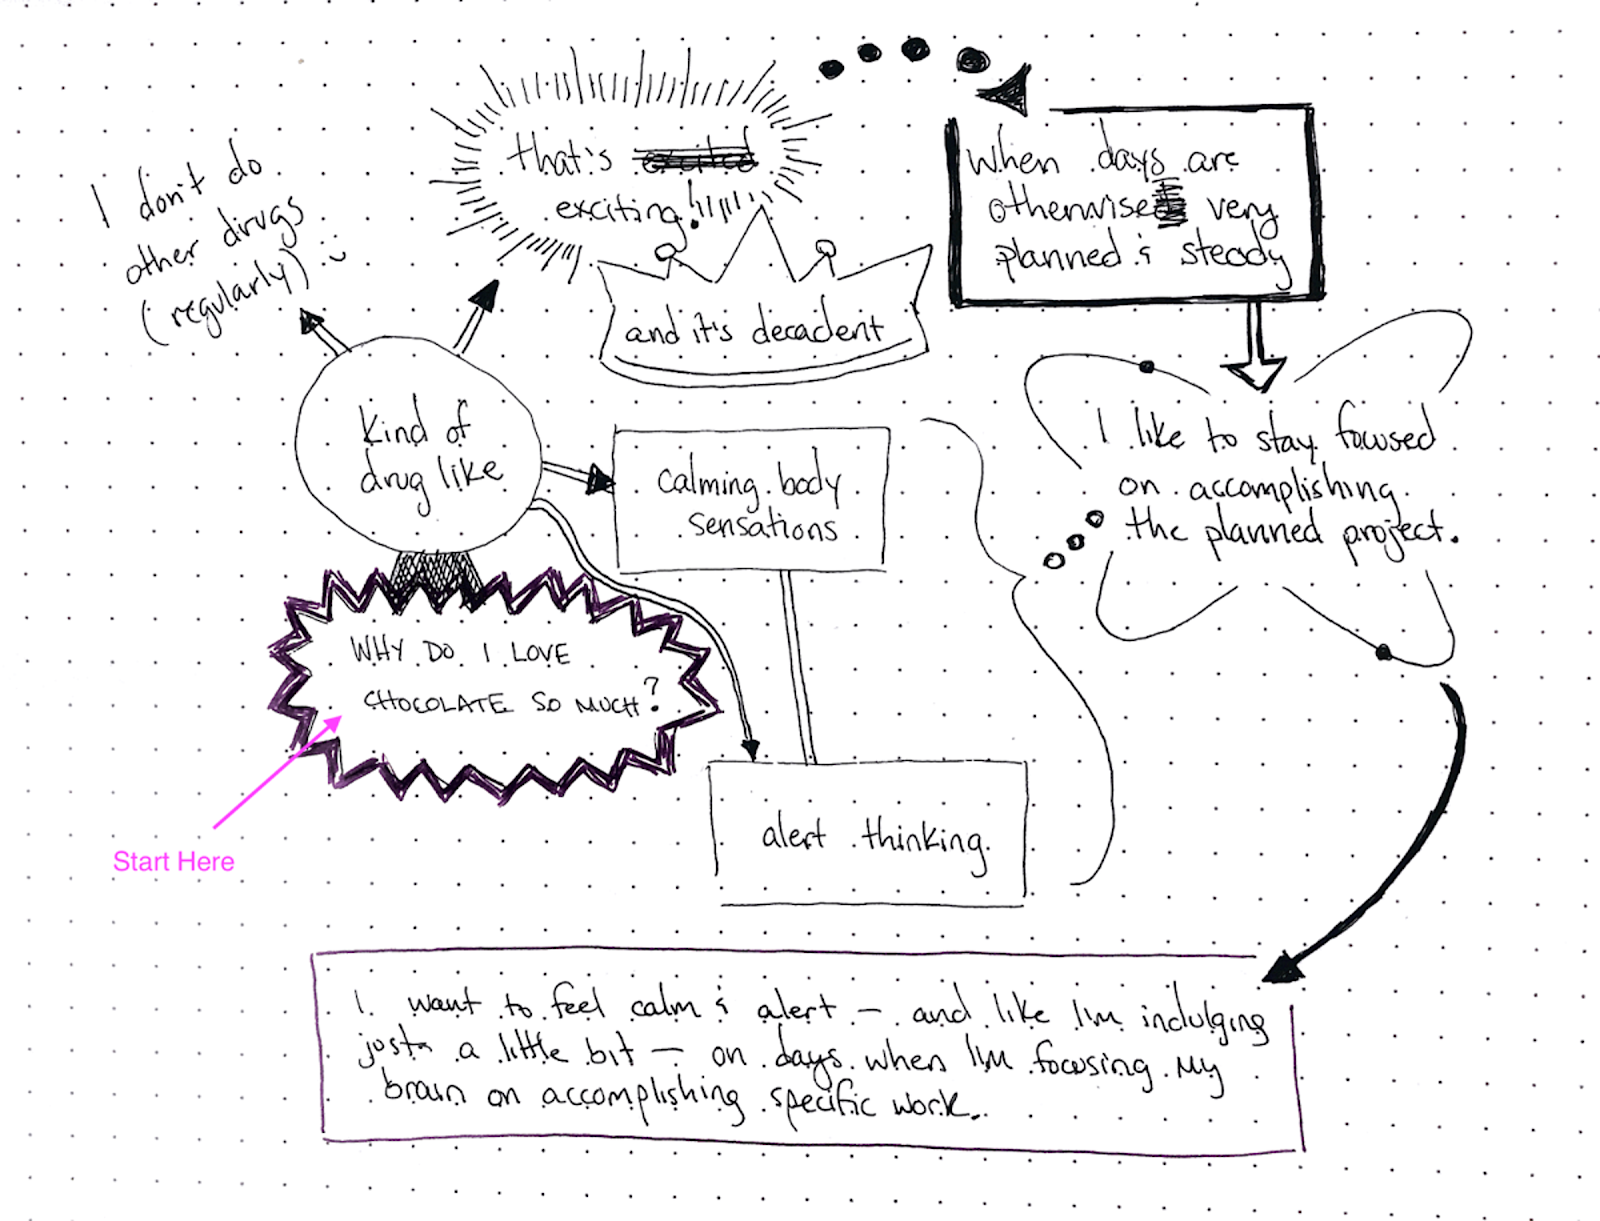 I don't do
other drugs
(regularly) :)
that's excited
exciting!
and it's decadent
when days are
otherwise very
planned & steady
Kind of
drug like
calming body
sensations
I like to stay focused
on accomplishing
the planned project.
WHY DO I LOVE
CHOCOLATE SO MUCH?
alert thinking
Start Here
I want to feel calm & alert – and like I'm indulging
just a little bit – on days when I'm focusing my
brain on accomplishing specific work.